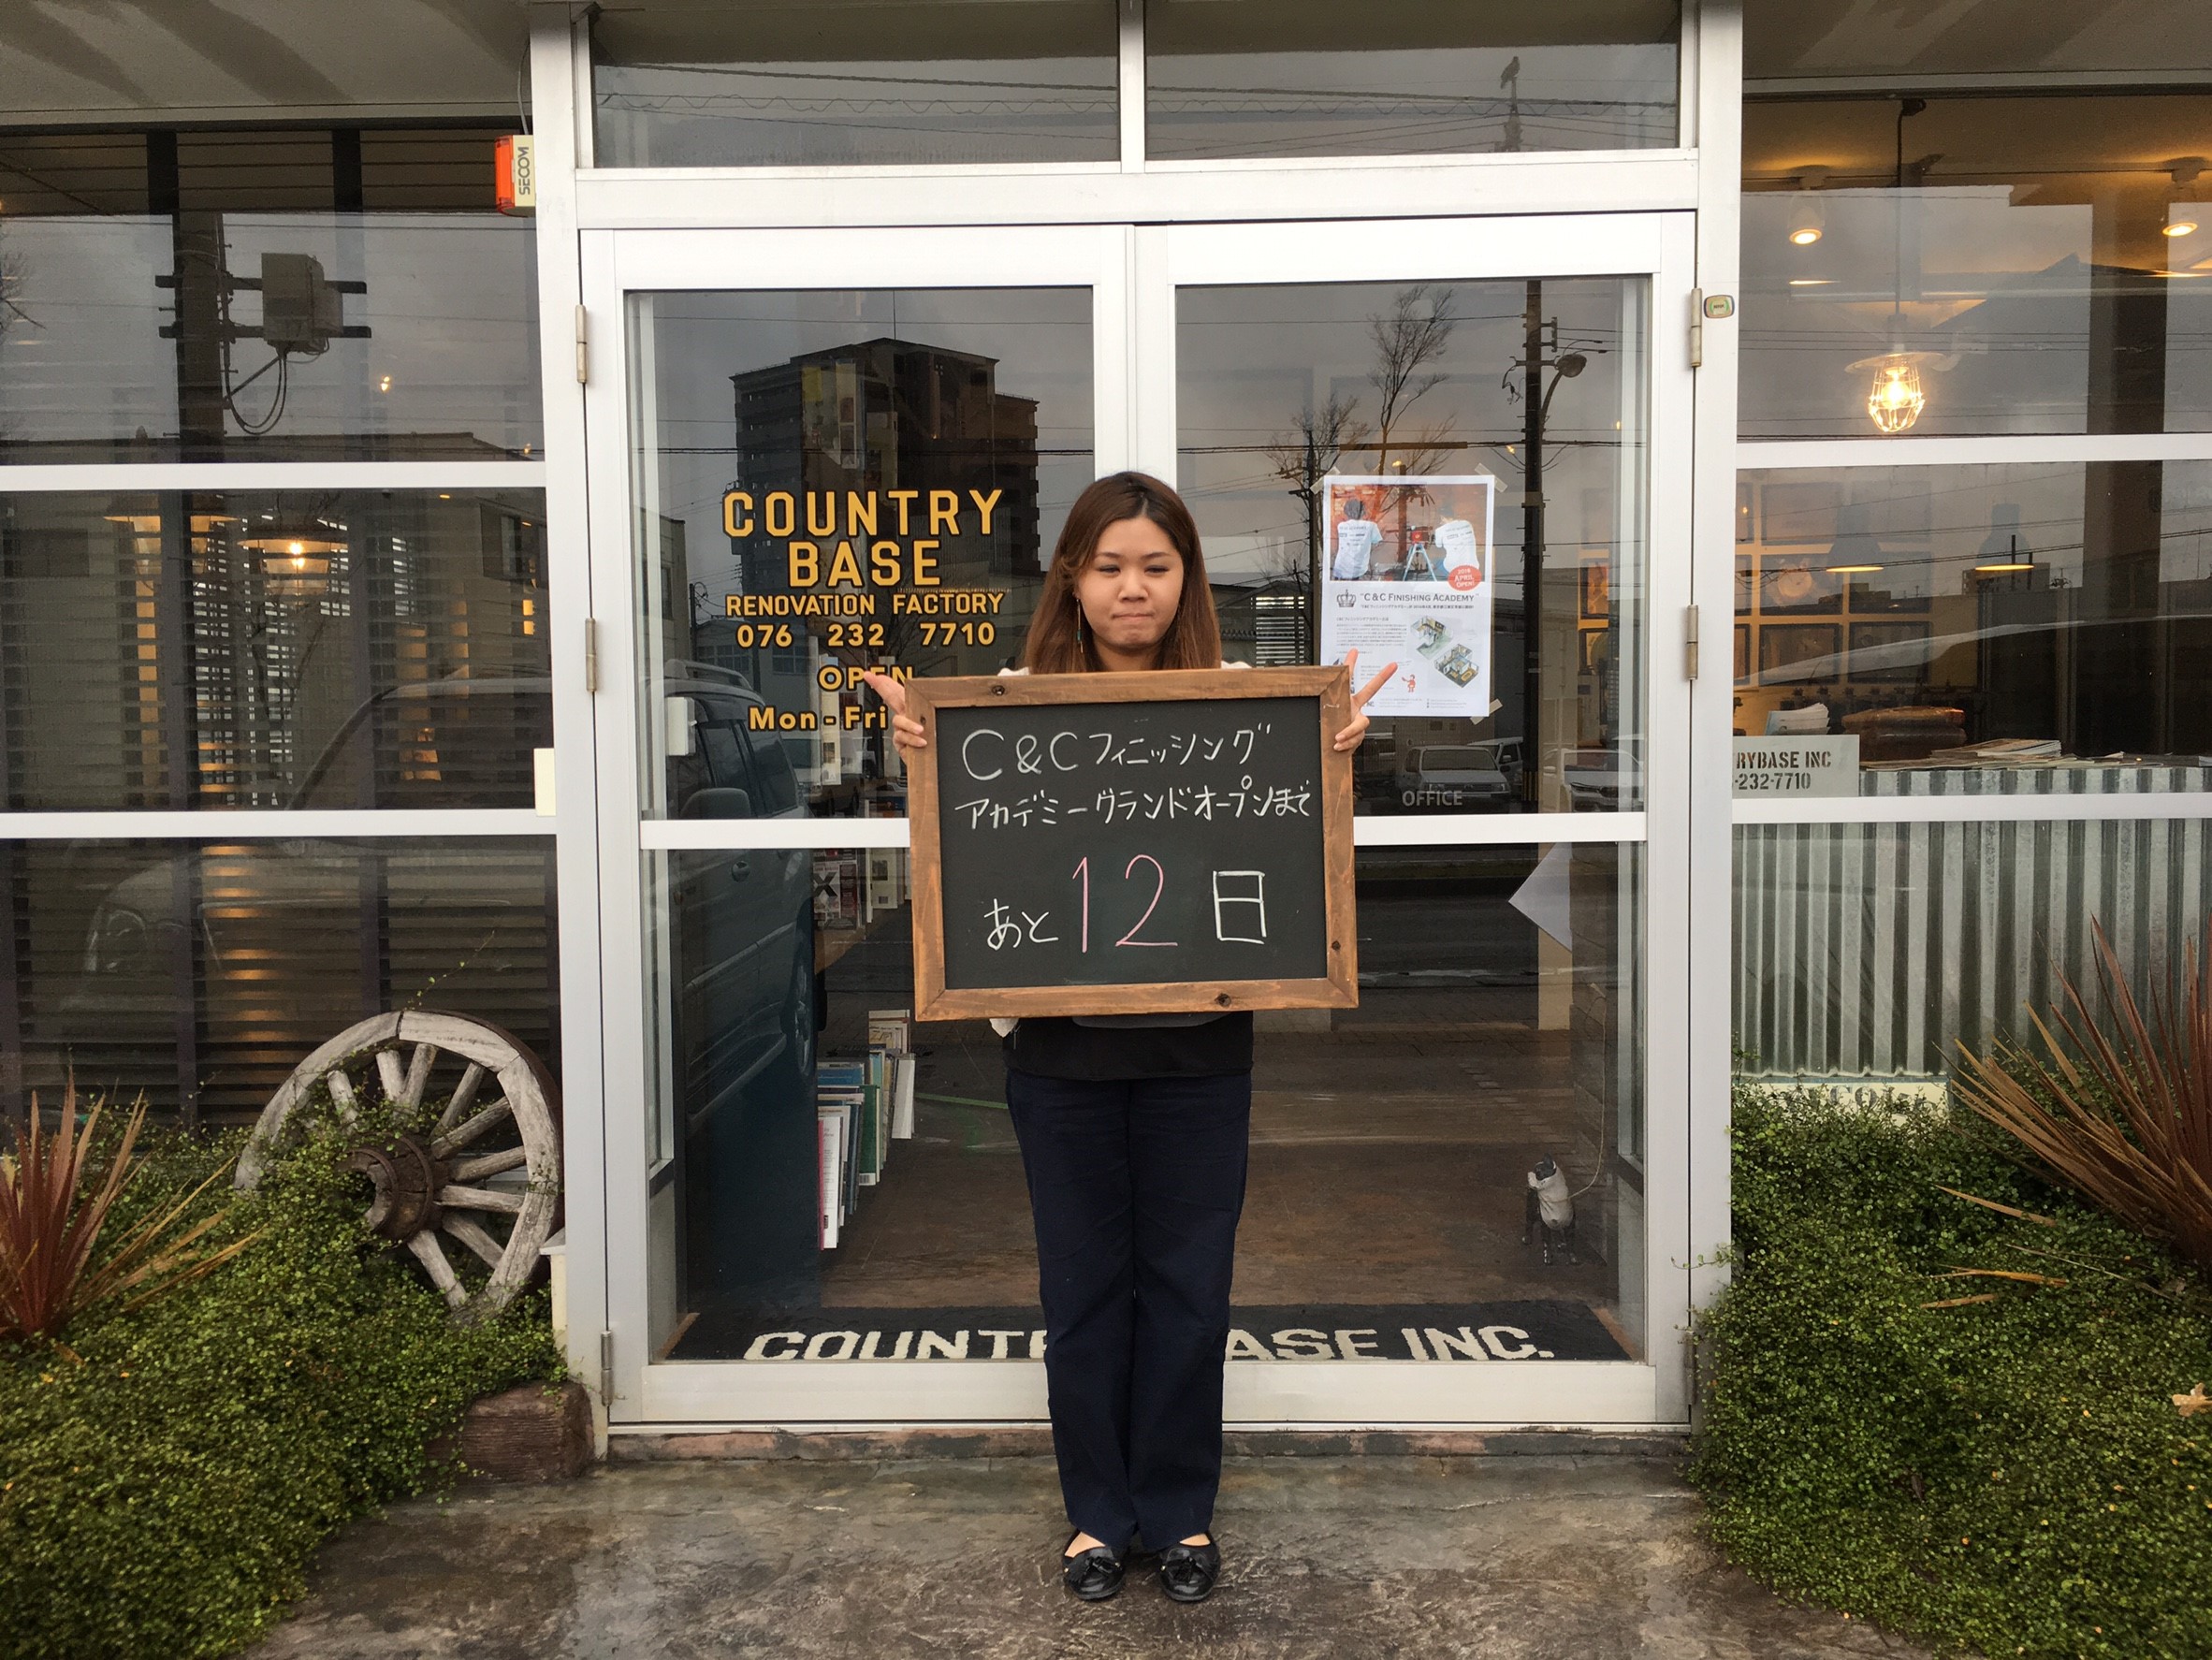 SECOM
COUNTRY
BASE
RENOVATION FACTORY
076 232 7710
OPEN
Mon - Fri
C&Cフィニッシング
アカデミーグランドオープンまで
あと12日
2016
APRIL
OPEN!
"C&C FINISHING ACADEMY"
OFFICE
RYBASE INC
-232-7710
COUNTR ASE INC.